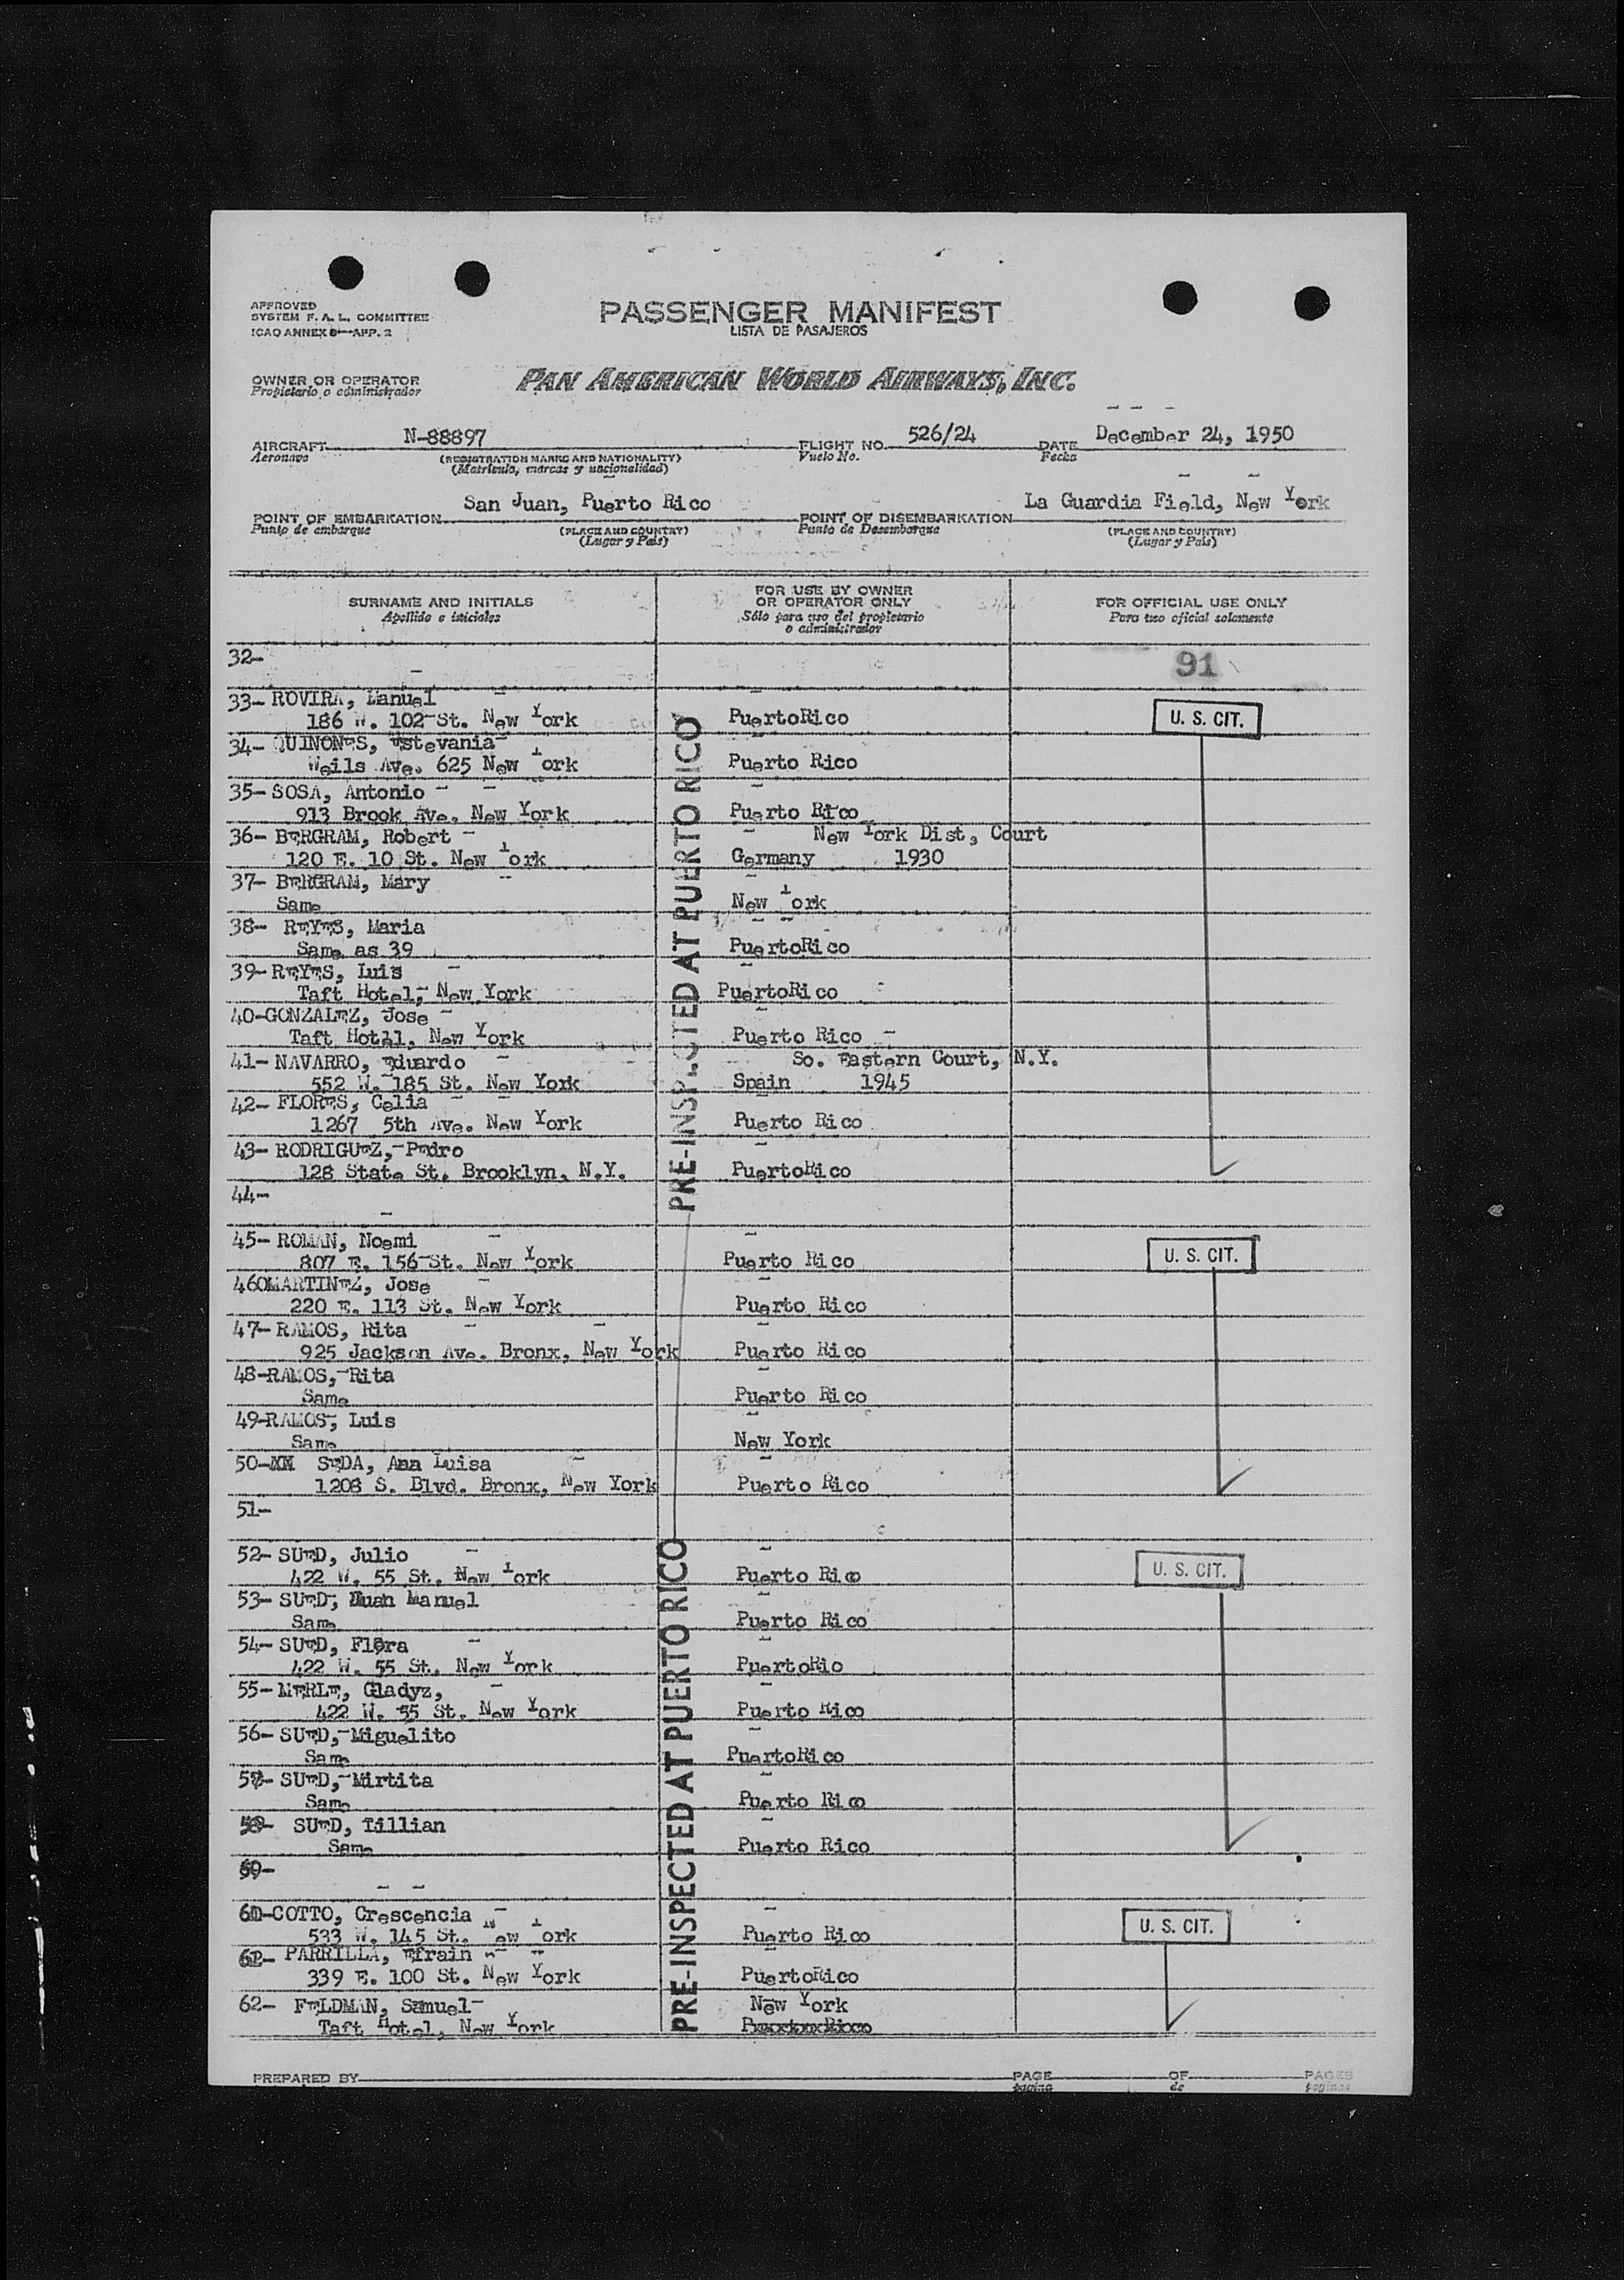 APPROVED
SYSTEM F. A. L. COMMITTEE
ICAO ANNEX 9—APP. 2
PASSENGER MANIFEST
LISTA DE PASAJEROS
OWNER OR OPERATOR
Propietario o administrador
PAN AMERICAN WORLD AIRWAYS, INC.
AIRCRAFT N-88897 FLIGHT NO. 526/24 DATE December 24, 1950
Aeronave (REGISTRATION MARKS AND NATIONALITY) Vuelo No. Fecha
(Matrícula, marcas y nacionalidad)
POINT OF EMBARKATION San Juan, Puerto Rico POINT OF DISEMBARKATION La Guardia Field, New York
Punto de embarque (PLACE AND COUNTRY) Punto de Desembarque (PLACE AND COUNTRY)
(Lugar y País) (Lugar y País)
SURNAME AND INITIALS
Apellido e iniciales
FOR USE BY OWNER
OR OPERATOR ONLY
Sólo para uso del propietario
o administrador
FOR OFFICIAL USE ONLY
Para uso oficial solamente
32- 91
33- ROVIRA, Manuel
186 W. 102 St. New York PuertoRico U. S. CIT.
34- QUINONES, Estevania
Weils Ave. 625 New York Puerto Rico
35- SOSA, Antonio
913 Brook Ave. New York Puerto Rico
36- BERGRAM, Robert New York Dist, Court
120 E. 10 St. New York Germany 1930
37- BERGRAM, Mary
Same New York
38- REYES, Maria
Same as 39 PuertoRico
39- REYES, Luis
Taft Hotel, New York PuertoRico
40-GONZALEZ, Jose
Taft Hotel, New York Puerto Rico
41- NAVARRO, Eduardo So. Eastern Court, N.Y.
552 W. 185 St. New York Spain 1945
42- FLORES, Celia
1267 5th Ave. New York Puerto Rico
43- RODRIGUEZ, Pedro
128 State St. Brooklyn, N.Y. PuertoRico
PRE-INSPECTED AT PUERTO RICO
44-
45- ROMAN, Noemi
807 E. 156 St. New York Puerto Rico U. S. CIT.
460MARTINEZ, Jose
220 E. 113 St. New York Puerto Rico
47- RAMOS, Rita
925 Jackson Ave. Bronx, New York Puerto Rico
48-RAMOS, Rita
Same Puerto Rico
49-RAMOS, Luis
Same New York
50-XX SEDA, Ana Luisa
1208 S. Blvd. Bronx, New York Puerto Rico
51-
52- SUED, Julio
422 W. 55 St. New York Puerto Rico U. S. CIT.
53- SUED, Juan Manuel
Same Puerto Rico
54- SUED, Flora
422 W. 55 St. New York PuertoRio
55- MERLE, Gladyz,
422 W. 55 St. New York Puerto Rico
56- SUED, Miguelito
Same PuertoRico
57- SUED, Mirtita
Same Puerto Rico
58- SUED, Lillian
Same Puerto Rico
59-
60-COTTO, Crescencia
533 W. 145 St. New York Puerto Rico U. S. CIT.
61- PARRILLA, Efrain
339 E. 100 St. New York PuertoRico
62- FELDMAN, Samuel New York
Taft Hotel, New York
PRE-INSPECTED AT PUERTO RICO
PREPARED BY PAGE OF PAGES
página de páginas